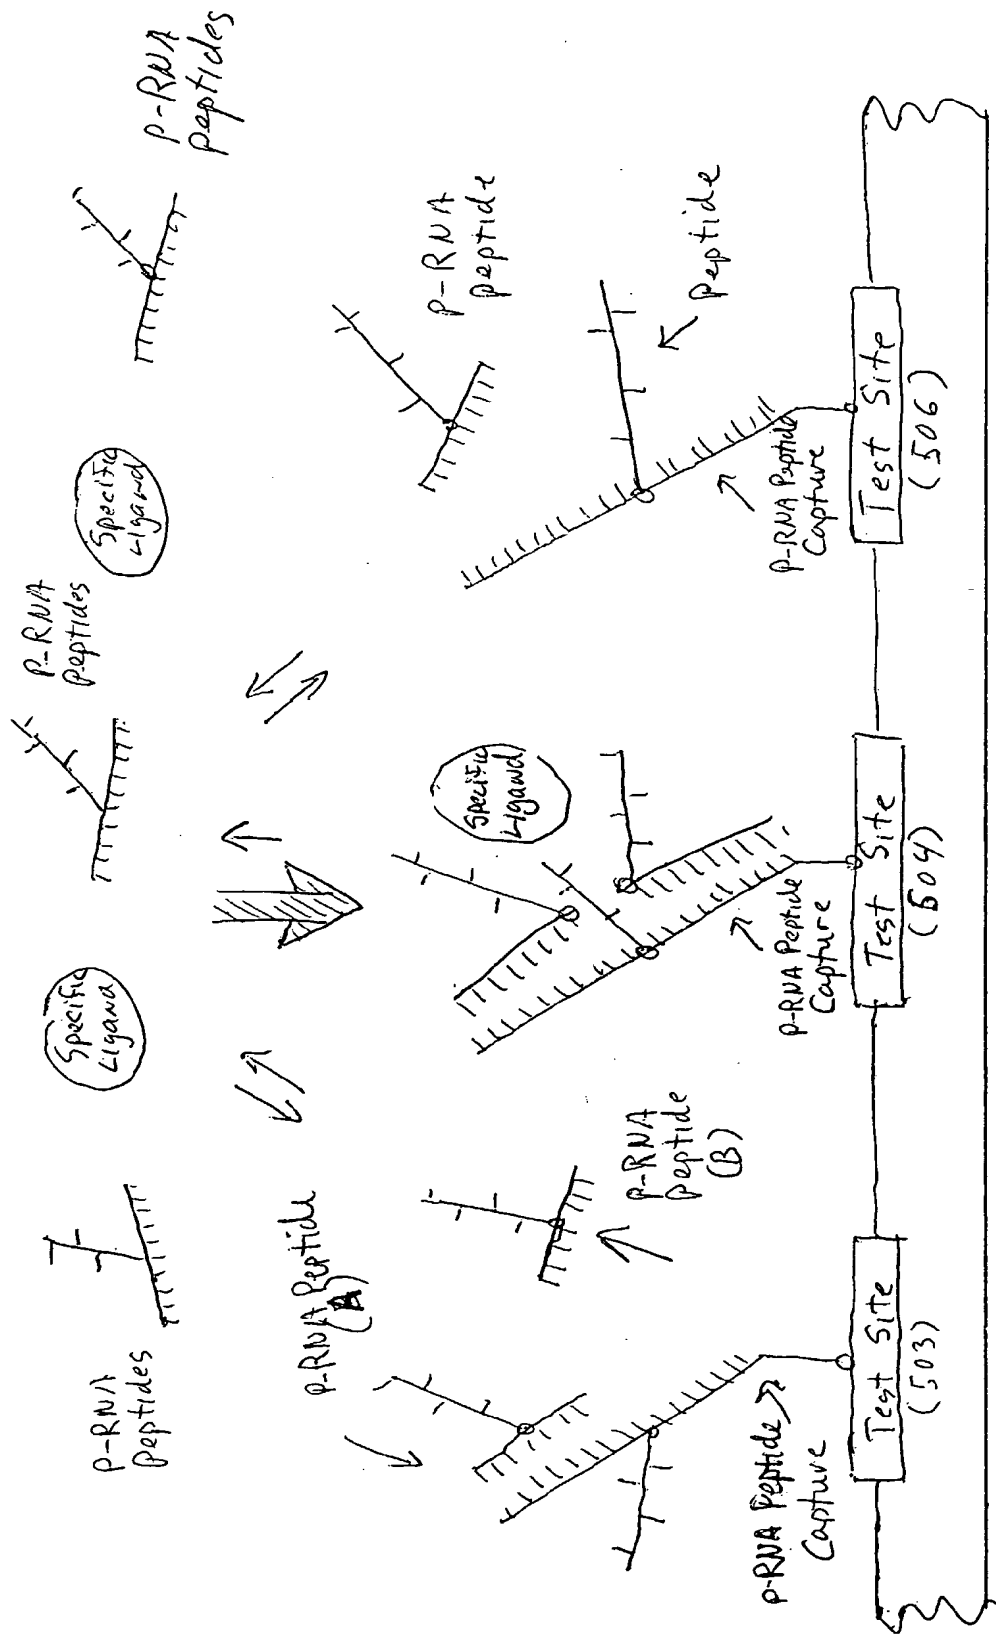 P-RNA
Peptides
Specific
Ligand
P-RNA
Peptides
Specific
Ligand
P-RNA
Peptides
P-RNA Peptide
(A)
P-RNA
Peptide
(B)
Specific
Ligand
P-RNA
Peptide
Peptide
P-RNA Peptide
Capture
P-RNA Peptide
Capture
P-RNA Peptide
Capture
Test Site
(503)
Test Site
(504)
Test Site
(506)